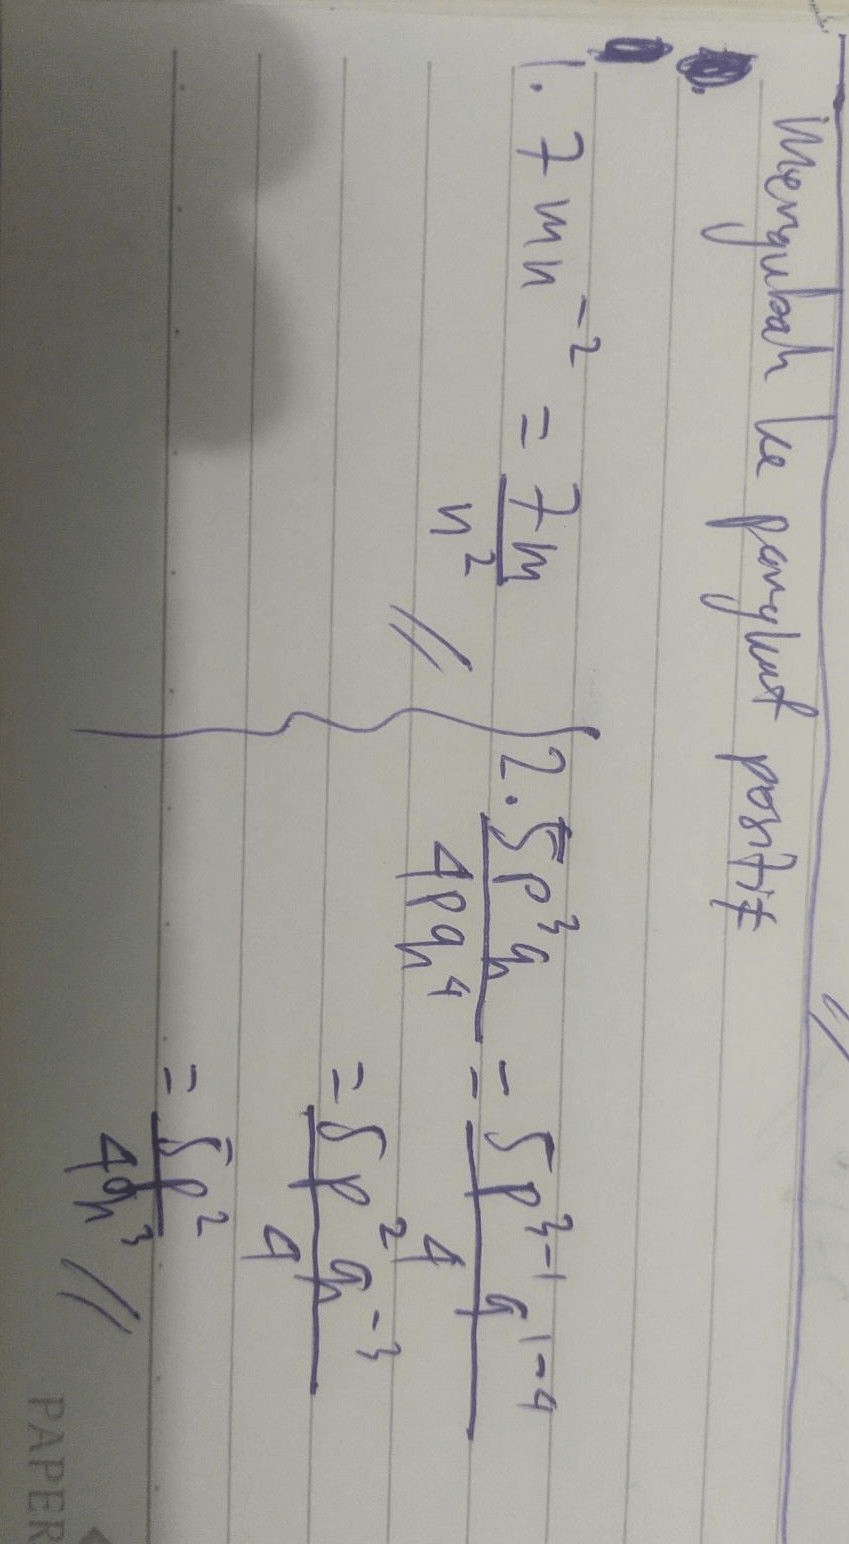 Mengubah ke pangkat positif
1. 7mn⁻² = 7m / n² //
2. 5p³q / 4pq⁴ = 5p³⁻¹ q¹⁻⁴ / 4
= 5p² q⁻³ / 4
= 5p² / 4q³ //
PAPER